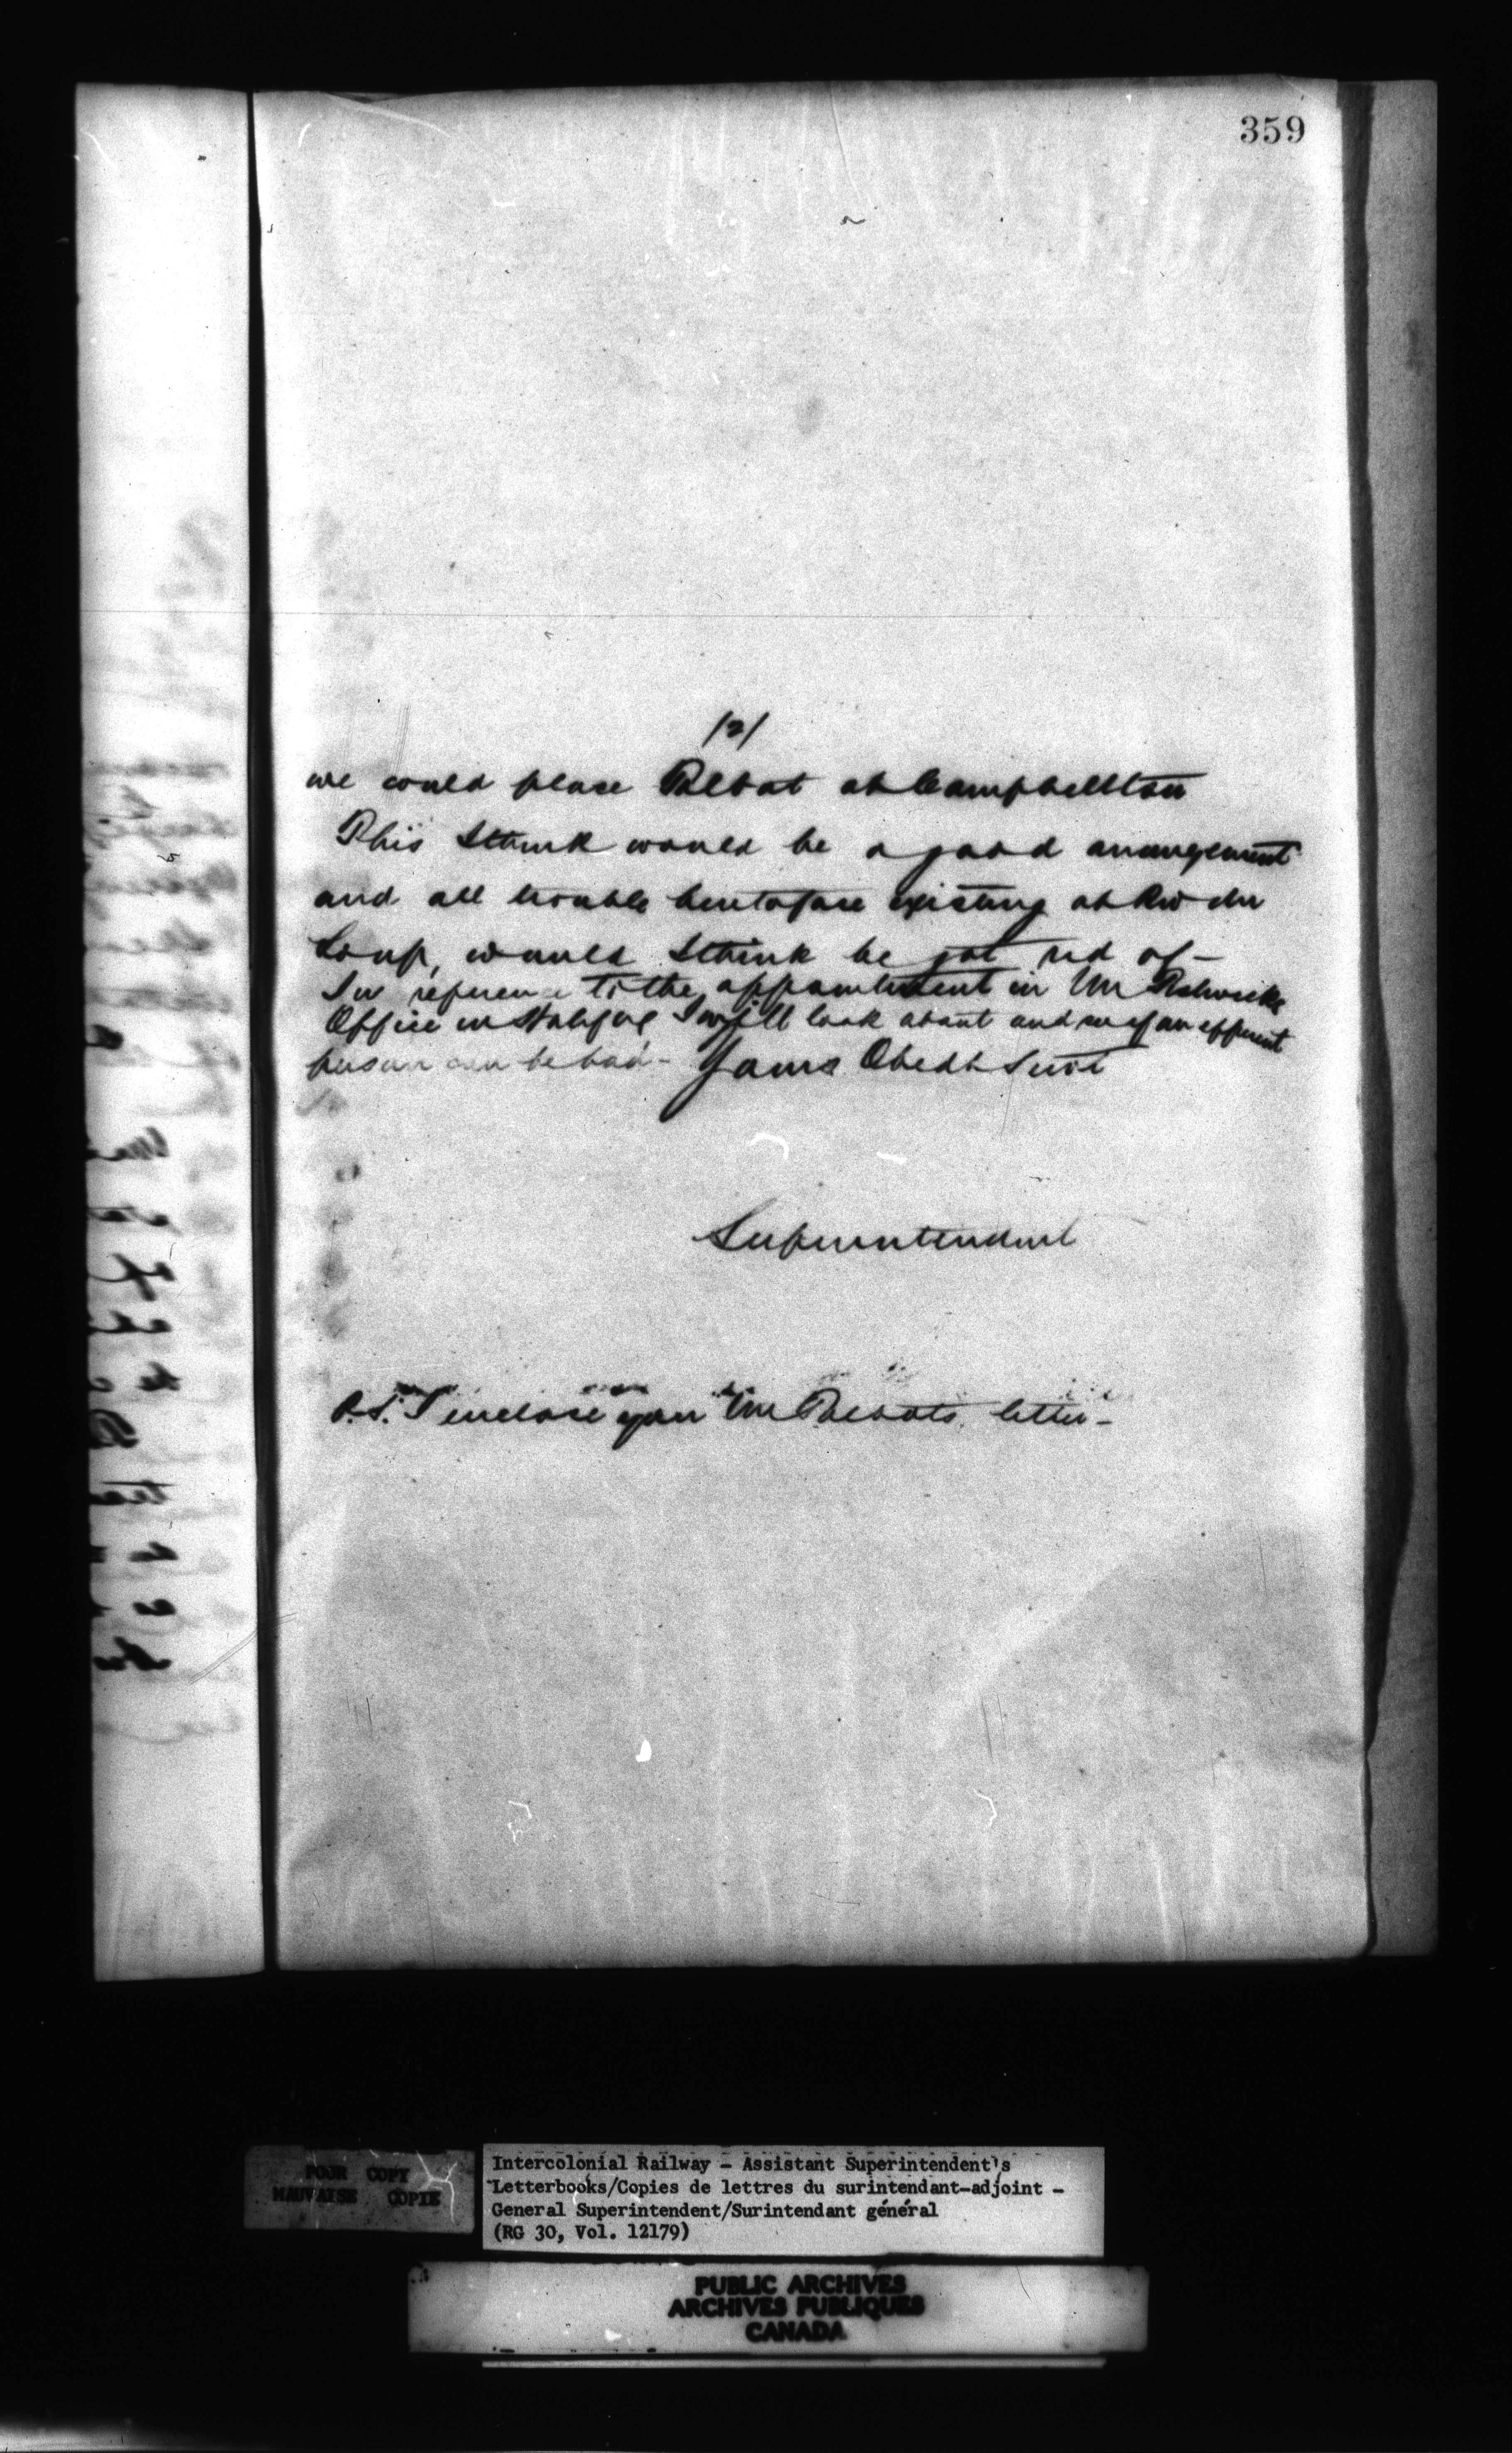 359
/2/
we could place Talbot at Campbellton
This I think would be a good arrangement
and all trouble heretofore existing at Riv du
Loup, would I think be got rid of -
In reference to the appointment in Mr
Office in Halifax I will look about and see if an efficient
person can be had - Yours Obedt Servt
Superintendent
P.S. I enclose you Mr Talbots letter -
POOR COPY
MAUVAISE COPIE
Intercolonial Railway - Assistant Superintendent's
Letterbooks/Copies de lettres du surintendant-adjoint -
General Superintendent/Surintendant général
(RG 30, Vol. 12179)
PUBLIC ARCHIVES
ARCHIVES PUBLIQUES
CANADA